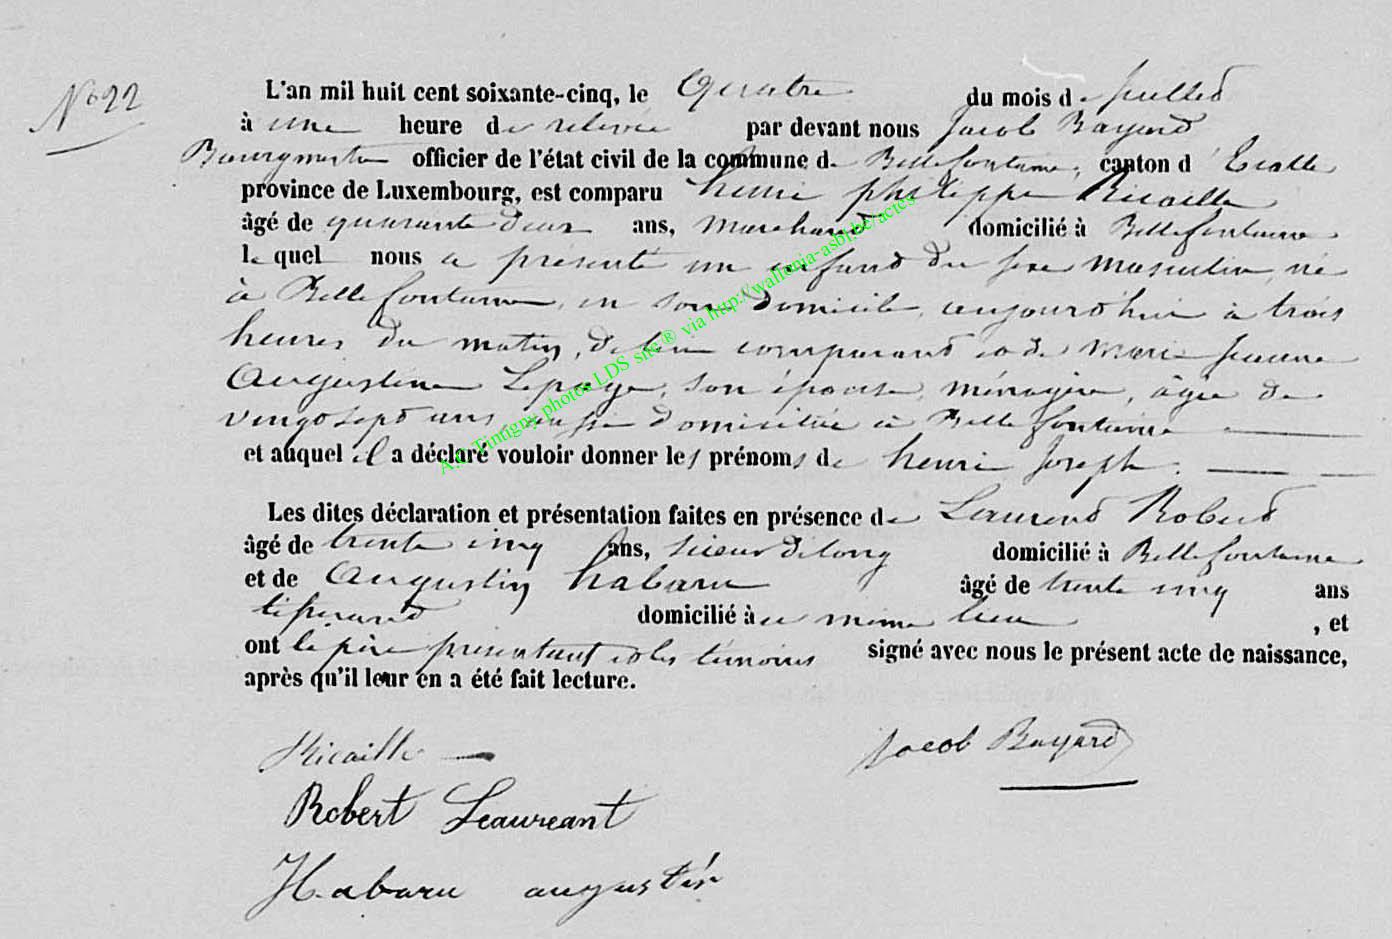 No 22
L'an mil huit cent soixante-cinq, le Quatre du mois de juillet
à une heure de relevée par devant nous Jacob Bayard
Bourgmestre officier de l'état civil de la commune de Bellefontaine, canton d'Etalle
province de Luxembourg, est comparu henri philippe Ricaille
âgé de quarante deux ans, marchand domicilié à Bellefontaine
le quel nous a présenté un enfant du sexe masculin, né
à Bellefontaine, en son domicile, aujourd'hui à trois
heures du matin, de lui comparant et de marie jeanne
Augustine Lepage, son épouse, ménagère, âgée de
vingt sept ans, aussi domiciliée à Bellefontaine
et auquel il a déclaré vouloir donner les prénoms de henri joseph.
Les dites déclaration et présentation faites en présence de Laurent Robert
âgé de trente cinq ans, sieur de long domicilié à Bellefontaine
et de Augustin habaru âgé de trente cinq ans
tisserand domicilié à au même lieu, et
ont le père présentant et les témoins signé avec nous le présent acte de naissance,
après qu'il leur en a été fait lecture.
Ricaille
Jacob Bayard
Robert Leaureant
Habaru augustin
A.C. Tintigny photos LDS site® via http://wallonia-asbl.be/actes